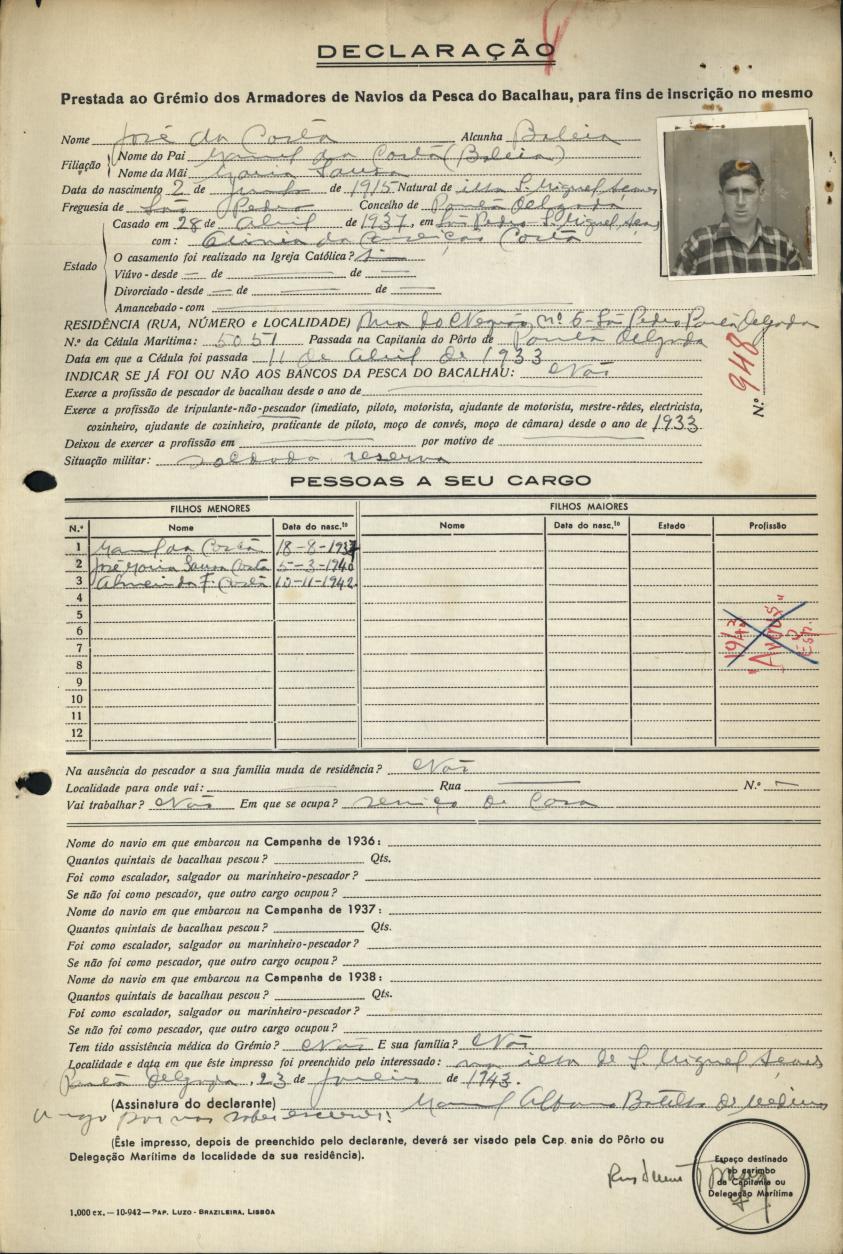 DECLARAÇÃO
Prestada ao Grémio dos Armadores de Navios da Pesca do Bacalhau, para fins de inscrição no mesmo
Nome José da Costa Alcunha Baleia
Filiação
Nome do Pai Manuel da Costa (Baleia)
Nome da Mãi Maria Sousa
Data do nascimento 2 de de 1915 Natural de ilha S. Miguel Açores
Freguesia de São Pedro Concelho de Ponta Delgada
Estado
Casado em 28 de Abril de 1937, em São Pedro S. Miguel Açores
com: da Costa
O casamento foi realizado na Igreja Católica? Sim
Viúvo - desde — de — de —
Divorciado - desde — de — de —
Amancebado - com —
RESIDÊNCIA (RUA, NÚMERO e LOCALIDADE) Rua do Negrão nº 6 - São Pedro Ponta Delgada
N.º da Cédula Marítima: 5051 Passada na Capitania do Pôrto de Ponta Delgada
Data em que a Cédula foi passada 11 de Abril de 1933
INDICAR SE JÁ FOI OU NÃO AOS BANCOS DA PESCA DO BACALHAU: Não
Exerce a profissão de pescador de bacalhau desde o ano de —
Exerce a profissão de tripulante-não-pescador (imediato, piloto, motorista, ajudante de motorista, mestre-rêdes, electricista,
cozinheiro, ajudante de cozinheiro, praticante de piloto, moço de convés, moço de câmara) desde o ano de 1933
Deixou de exercer a profissão em — por motivo de —
Situação militar: soldado reserva
N.º 948
PESSOAS A SEU CARGO
FILHOS MENORES FILHOS MAIORES
N.º Nome Data do nasc.to Nome Data do nasc.to Estado Profissão
1 Manuel da Costa 18-8-1937
2 José Maria Sousa Costa 5-3-1940
3 Almerinda F. Costa 10-11-1942
4
5
6
7
8
9
10
11
12
1943
Esp.
Na ausência do pescador a sua família muda de residência? Não
Localidade para onde vai: Rua — N.º —
Vai trabalhar? Não Em que se ocupa? serviço de Casa
Nome do navio em que embarcou na Campanha de 1936:
Quantos quintais de bacalhau pescou? Qts.
Foi como escalador, salgador ou marinheiro-pescador?
Se não foi como pescador, que outro cargo ocupou?
Nome do navio em que embarcou na Campanha de 1937:
Quantos quintais de bacalhau pescou? Qts.
Foi como escalador, salgador ou marinheiro-pescador?
Se não foi como pescador, que outro cargo ocupou?
Nome do navio em que embarcou na Campanha de 1938:
Quantos quintais de bacalhau pescou? Qts.
Foi como escalador, salgador ou marinheiro-pescador?
Se não foi como pescador, que outro cargo ocupou?
Tem tido assistência médica do Grémio? Não E sua família? Não
Localidade e data em que êste impresso foi preenchido pelo interessado: na ilha de S. Miguel Açores
Ponta Delgada, 23 de de 1943.
(Assinatura do declarante) Manuel Botelho de Medeiros
a rogo por não saber escrever!
(Êste impresso, depois de preenchido pelo declarante, deverá ser visado pela Cap. ania do Pôrto ou
Delegação Marítima da localidade da sua residência).
Espaço destinado
ao carimbo
da Capitania ou
Delegação Marítima
1,000 ex. — 10-942 — PAP. LUZO - BRAZILEIRA, LISBÔA